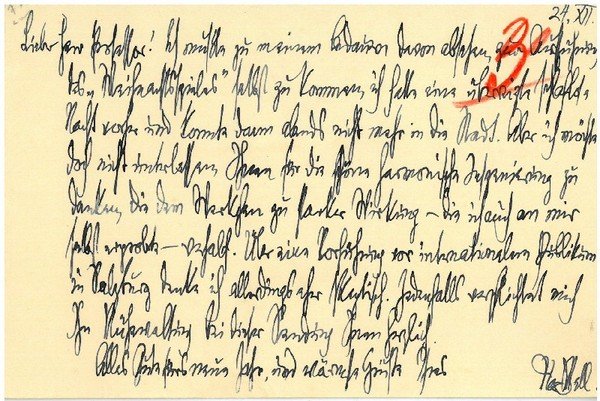 24. XII.
Lieber Herr Professor! Ich mußte zu meinem Bedauern davon absehen, zur Aufführung
des „Weihnachtsspieles" selbst zu kommen, ich hatte eine schlechte
Nacht vorher und konnte dann abends nicht mehr in die Stadt. Aber ich möchte
doch nicht unterlassen, Ihnen für die schöne harmonische Inszenierung zu
danken, die dem Werkchen zu starker Wirkung – die ich auch an mir
selbst erprobte – verhalf. Über eine Vorführung vor internationalem Publikum
in Salzburg denke ich allerdings eher skeptisch. Jedenfalls verpflichtet mich
Ihre bei dieser Ihnen herzlich.
Alles Gute fürs neue Jahr, und wärmste Grüße Ihres
Max Mell.
3